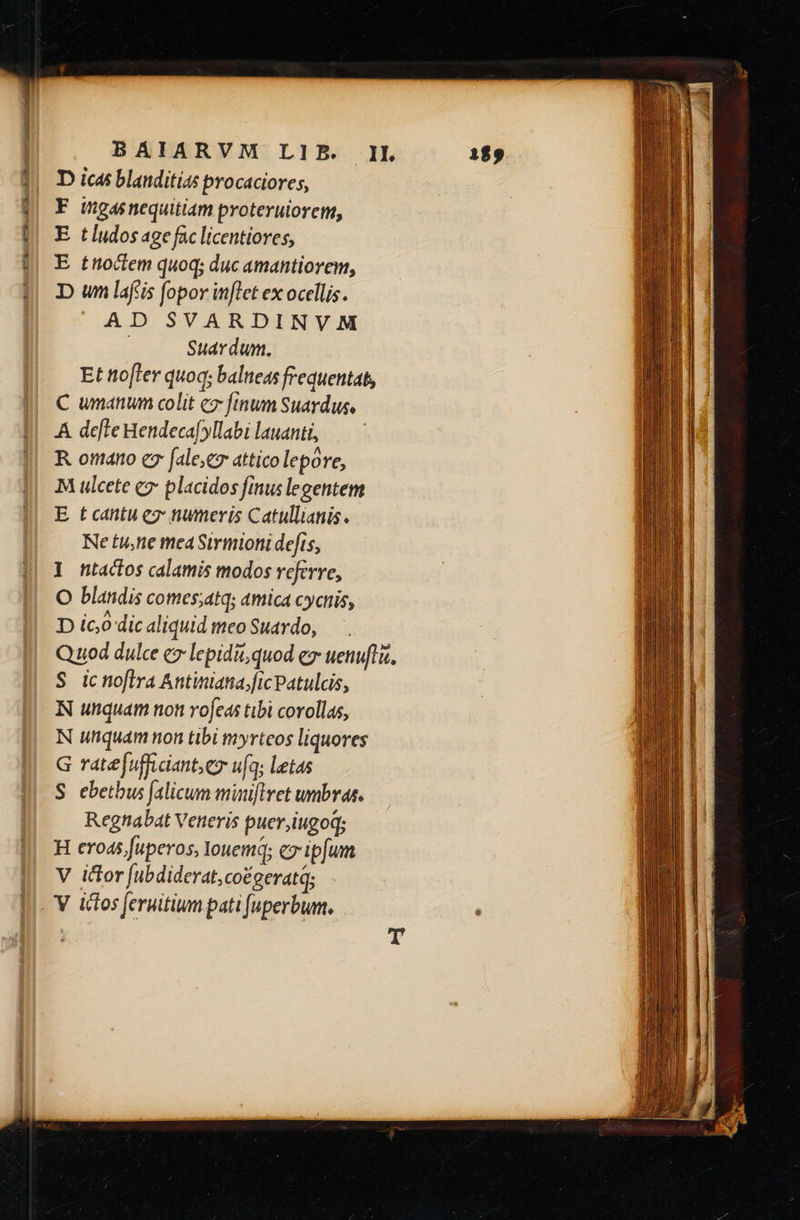 BAIARVM LIB. II. 289
D icas blanditias procaciores,
F ingas nequitiam proteruiorem,
E t ludos age fac licentiores,
E t noctem quoq; duc amantiorem,
D um lassis sopor instet ex ocellis.
AD SVARDINVM
Suardum.
Et noster quoq; balneas frequentat,
C umanum colit & sinum Suardus.
A deste Hendecasyllabi lauanti,
R omano & sale, & attico lepòre,
M ulcete & placidos sinus legentem
E t cantu & numeris Catullianis.
Ne tu, ne mea Sirmioni desis,
I ntactos calamis modos referre,
O blandis comes, atq; amica cycnis,
D ic, ò dic aliquid meo Suardo,
Quod dulce & lepidũ, quod & uenustũ.
S ic nostra Antiniana, sic Patulcis,
N unquam non roseas tibi corollas,
N unquam non tibi myrteos liquores
G ratæ sufficiant, & usq; letas
S ebethus salicum ministret umbras.
Regnabat Veneris puer, iugoq́;
H eroas, superos, Iouemq́; & ipsum
V ictor subdiderat, coëgeratq́;
V ictos seruitium pati superbum.
T